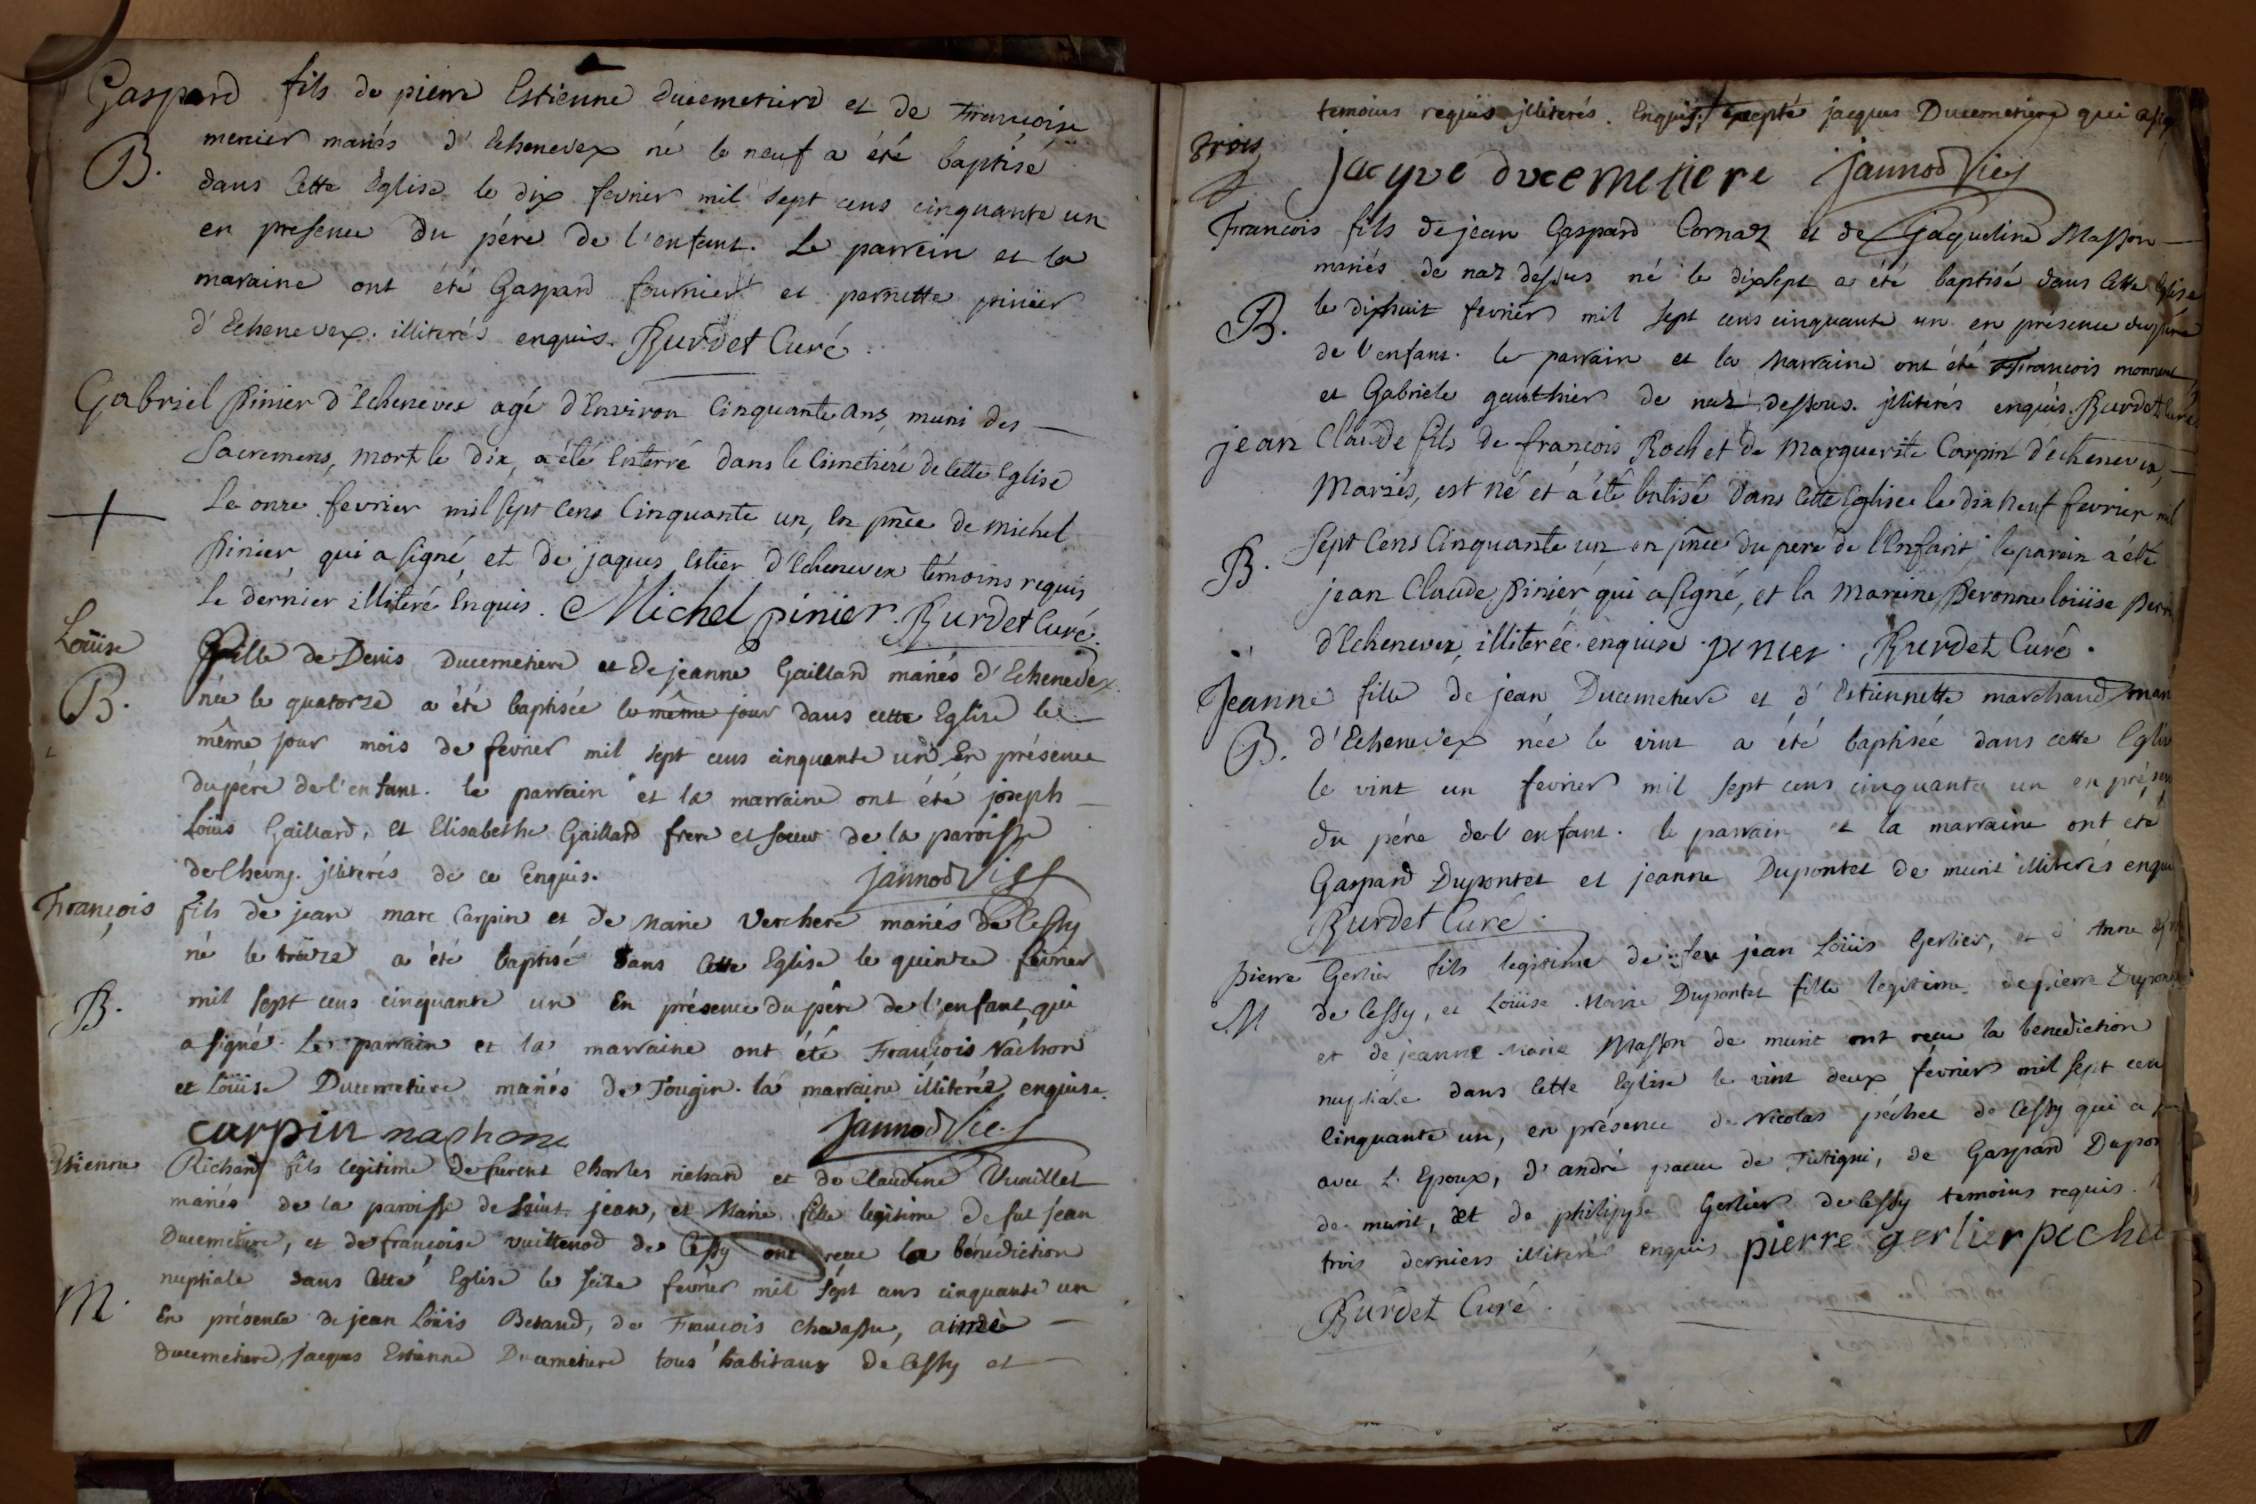 Gaspard fils de pierre Estienne ducemetiere et de Francoise
menier mariés d'Echenevex né le neuf a été baptisé
B.
dans cette Eglise le dix fevrier mil sept cens cinquante un
en presence du pére de l'enfant. Le parrein et la
maraine ont été Gaspard fournier et pernette pinier
d'Echenevex. illiterés enquis. Burdet Curé
Gabriel Pinier d'Echenevex agé d'Environ Cinquante ans, muni des
Sacremens, mort le dix, a été Enterré dans le Cimetiére de Cette Eglise
Le onze fevrier mil sept Cens Cinquante un, En pñce de Michel
Pinier, qui a signé, et de jaques Estier d'Echenevex témoins requis
Le dérnier illiteré Enquis. Michel pinier. Burdet Curé.
Loüise fille de Denis Ducemetiere et de jeanne Gaillard mariés d'Echenevex
B.
née le quatorze a été baptisée le même jour dans cette Eglise le
même jour mois de fevrier mil sept cens cinquante un En présence
du pére de l'enfant. le parrain et la marraine ont été joseph
Loüis Gaillard, et Elisabethe Gaillard frere et soeur de la paroisse
de Chevry. jlliterés de ce Enquis. jannod Vics
François fils de jean marc Carpin et de Marie Verchere mariés de Cessy
né le treize a été baptisé dans Cette Eglise le quinze fevrier
B.
mil sept cens cinquante un En présence du pére de l'enfant qui
a signé. Le parrain et la marraine ont été François Nachon
et Loüise Ducemetiere mariés de Tougin. la marraine illiterée enquise.
carpin nachon jannod Vics
Estienne Richard fils legitime de furent Charles richard et de Claudine Vuaillet
mariés de la paroisse de Saint jean, et Marie fille legitime de fut jéan
Ducemetiere, et de françoise vuillenod de Cessy ont recue la bénédiction
nuptiale dans Cette Eglise le seize fevrier mil sépt cens cinquante un
M.
En présence de jean Loüis Betaud, de François chavassu, aimé
ducemetiere, jacques Estienne Ducemetiere tous habitans de Cessy et
temoins requis jlliterés. Enquis, excepté jacques Ducemetiere qui a sig
trois
jacque ducemetiere jannod Vics
Francois fils de jean Gaspard Cornaz et de Jaqueline Masson
mariés de naz dessus né le dixsept a été baptisé dans Cette Eglise
B.
le dixhuit fevrier mil sept cens cinquante un en présence du pére
de l'enfant. le parrain et la Marraine ont été François
et Gabriele gauthier de naz dessous. jlliterés enquis. Burdet Curé
jean Claude fils de françois Roch et de Marguerite Carpin d'echenevex,
Mariés, est né et a été batisé dans Cette Eglise le dix neuf fevrier mil
B.
Sept Cens Cinquante un en pñce du pere de l'Enfant, le parein a été
jean Claude Pinier qui a signé, et la Mareine Peronne loüise
d'Echenevex, illiterée enquise. pinier. Burdet Curé.
Jeanne fille de jean Ducemetiere et d'Estiennette marchand mari
B.
d'Echenevex née le vint a été baptisée dans cette Eglise
le vint un fevrier mil sept cens cinquante un en présen
du pére de l'enfant. le parrain et la marraine ont été
Gaspard Dupontet et jeanne Dupontet de murit illiterés enqui
Burdet Curé.
pierre Gerlier fils legitime de feu jean Loüis Gerlier, et d'Anne
M
de Cessy, et Loüise Marie Dupontet fille legitime de pierre Dupont
et de jeanne Marie Masson de murit ont recu la benediction
nuptiale dans Cette Eglise le vint deux février mil sept cen
Cinquante un, en présence de Nicolas péchet de Cessy qui a
avec L'Epoux, d'andré pacu de Tutigni, de Gaspard Dupon
de murit, et de philippe Gerlier de Cessy temoins requis.
trois derniers illiterés enquis pierre gerlier pechet
Burdet Curé.